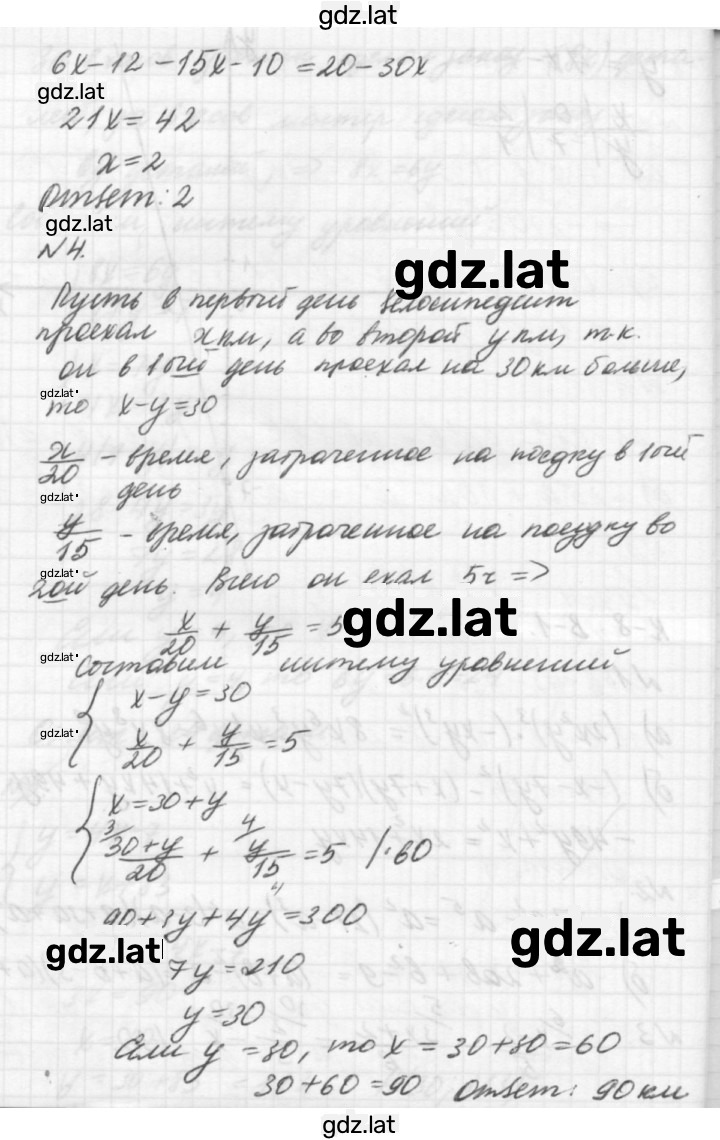 gdz.lat
6x-12-15x-10=20-30x
gdz.lat
21x=42
x=2
Ответ: 2
gdz.lat
№4.
gdz.lat
Пусть в первый день велосипедист
проехал x км, а во второй y км, т.к.
он в 1ый день проехал на 30 км больше,
gdz.lat
то x-y=30
x/20 - время, затраченное на поездку в 1ый
gdz.lat
день
y/15 - время, затраченное на поездку во
gdz.lat
2ой день. Всего он ехал 5ч =>
gdz.lat
x/20 + y/15 = 5
gdz.lat
Составим систему уравнений
x-y=30
gdz.lat
x/20 + y/15 = 5
x=30+y
3/ 4/
30+y/20 + y/15 = 5 /·60
90+3y+4y=300
gdz.lat
gdz.lat
7y=210
y=30
Если y=30, то x=30+30=60
30+60=90 Ответ: 90км
gdz.lat